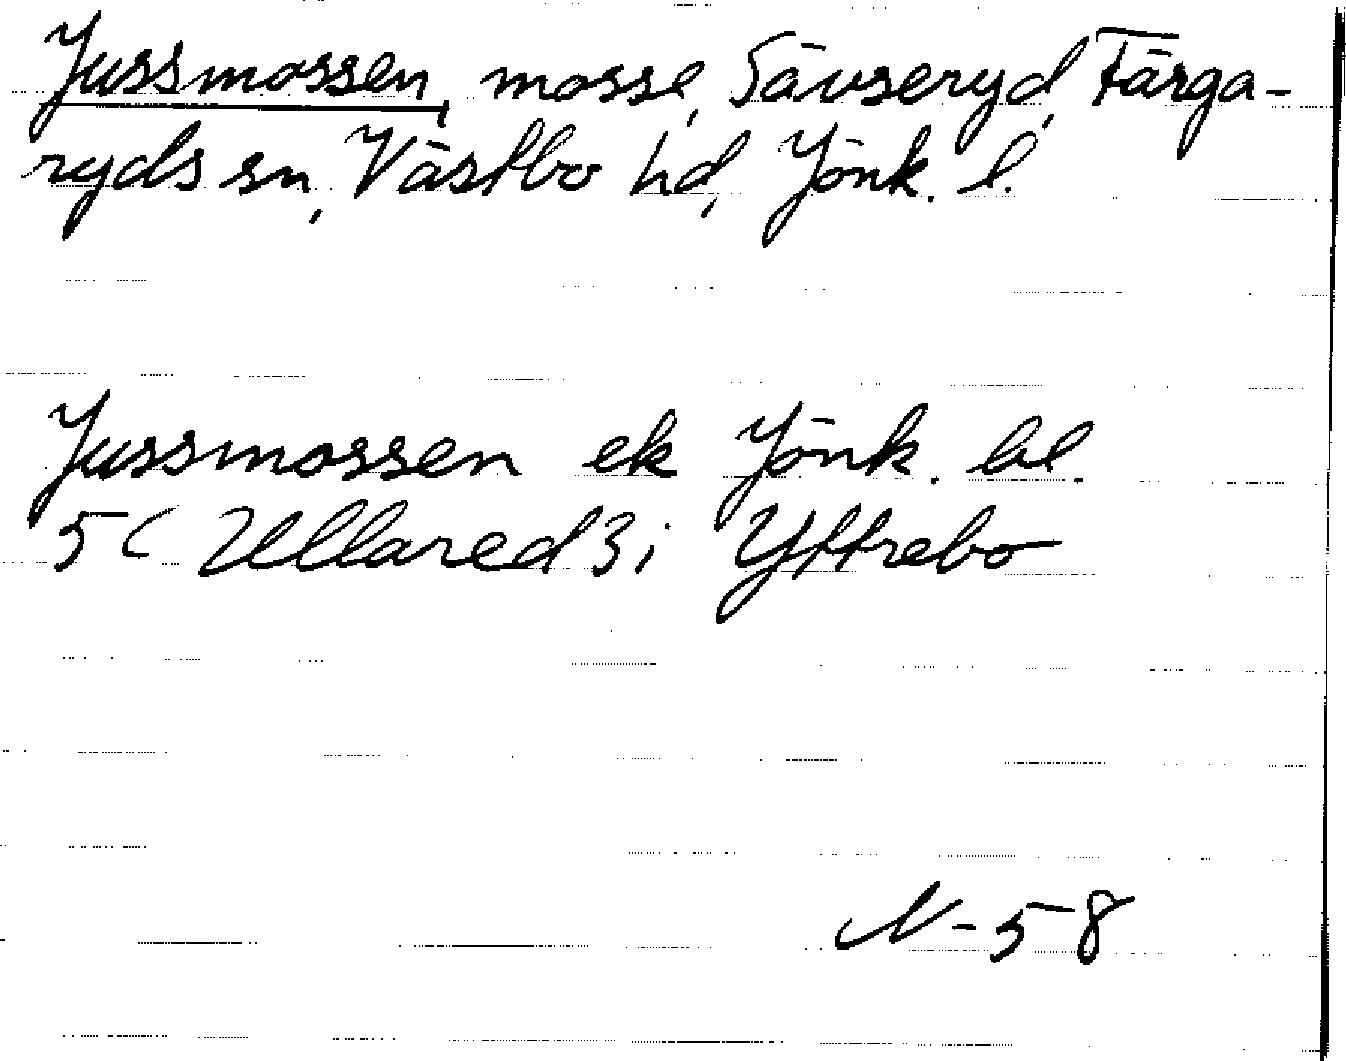 Jussmossen, mosse, Sävseryd, Färga-
ryds sn, Västbo hd, Jönk. l.
Jussmossen ek Jönk. bl.
5C Ullared 3i Yttrebo
N-58